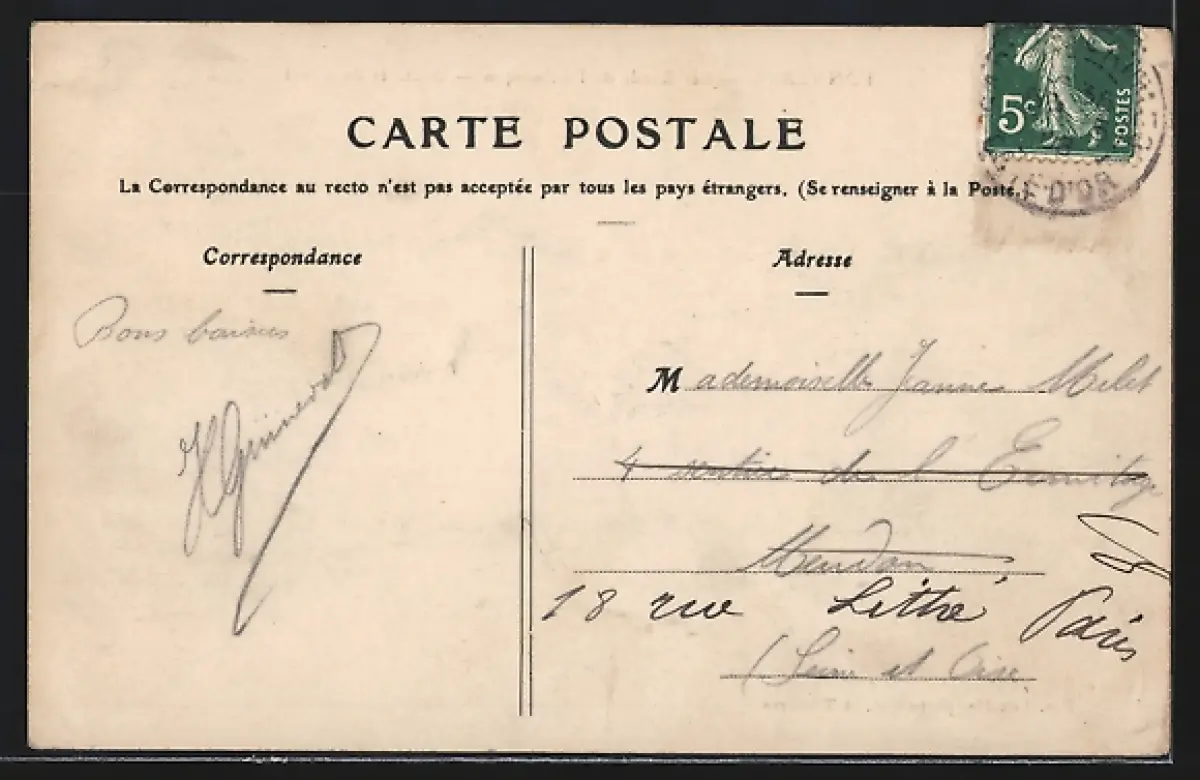 CARTE POSTALE
La Correspondance au recto n'est pas acceptée par tous les pays étrangers. (Se renseigner à la Poste.)
5c
POSTES
CÔTE-D'OR
Correspondance
Bons baisers
Adresse
Mademoiselle Jeanne Milet
4 sentier de l'Ermitage
Meudon
18 rue Littré Paris
(Seine et Oise